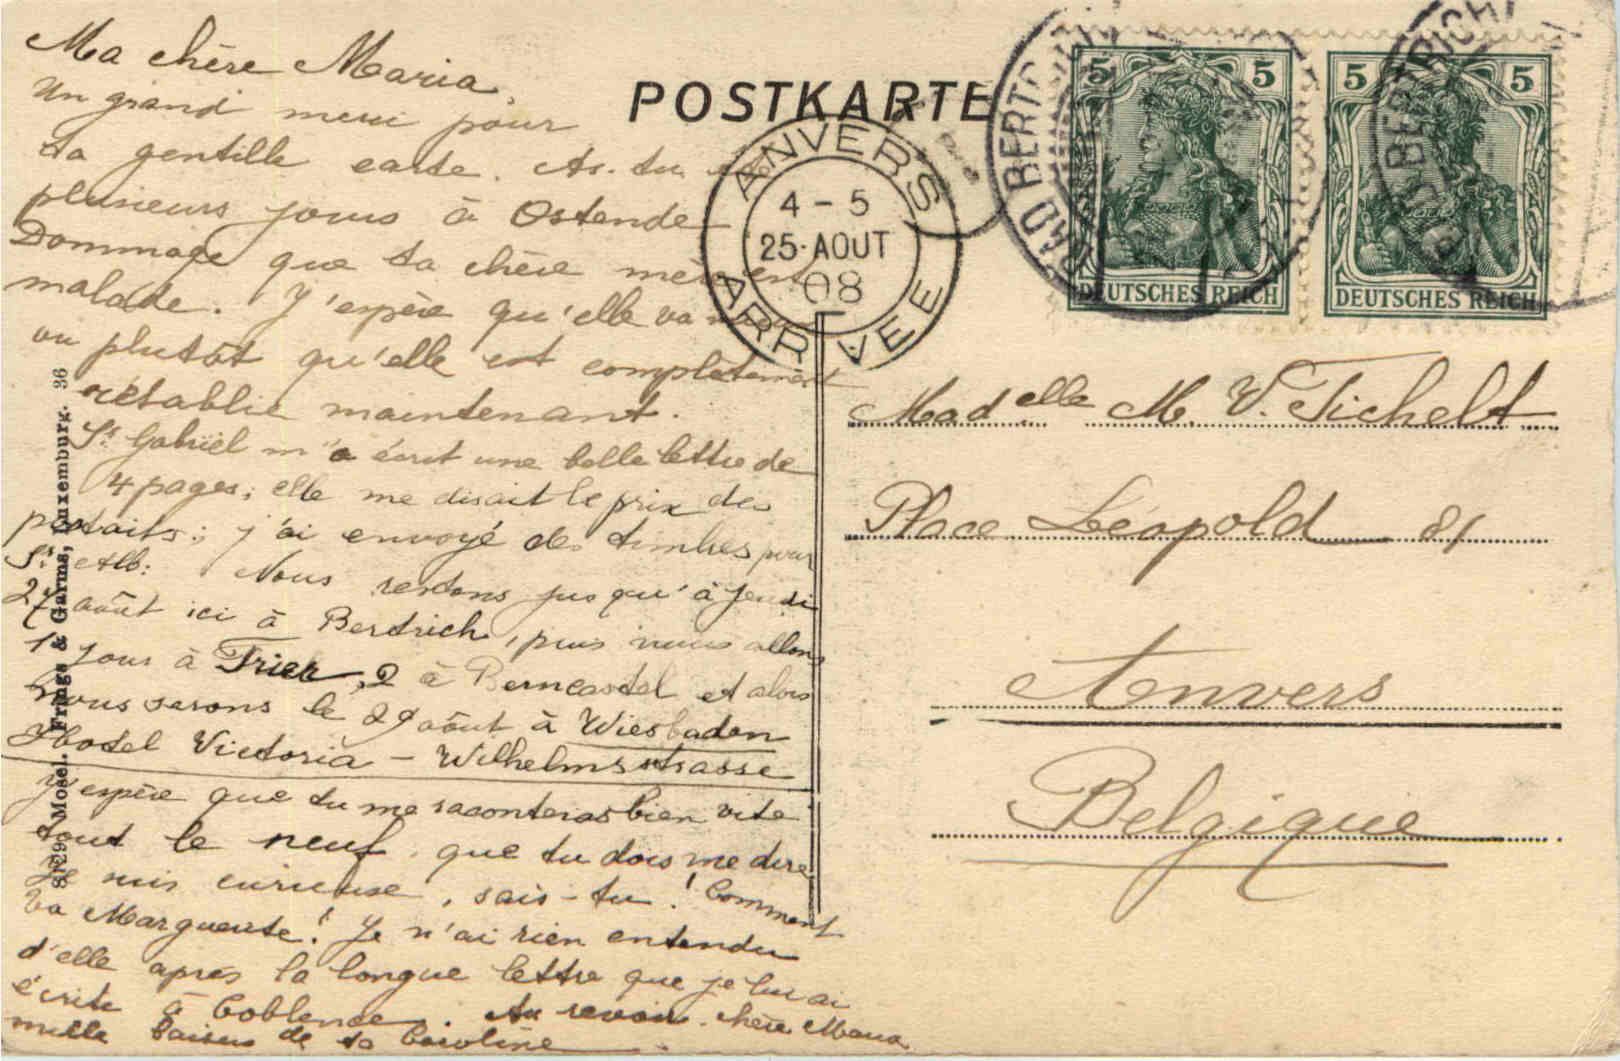 Ma chère Maria,
Un grand merci pour
ta gentille carte. As-tu été
plusieurs jours à Ostende
Dommage que ta chère mère est
malade. J'espère qu'elle va mieux
ou plutôt qu'elle est complètement
rétablie maintenant.
Sr Gabriël m'a écrit une belle lettre de
4 pages; elle me disait le prix des
portraits; j'ai envoyé des timbres pour
Sr Alb: Nous restons jusqu'à jeudi
27 août ici à Bertrich, puis nous allons
1 jour à Trier, 2 à Berncastel et alors
nous serons le 29 août à Wiesbaden
Hotel Victoria – Wilhelmsstrasse
J'espère que tu me raconteras bien vite
tout le neuf, que tu dois me dire
Je suis curieuse, sais-tu! Comment
va Marguerite! Je n'ai rien entendu
d'elle après la longue lettre que je lui ai
écrite à Coblence. Au revoir chère Maria
mille baisers de ta Caroline
POSTKARTE
ANVERS
4 - 5
25 AOUT
08
ARRIVEE
BAD BERTRICH
5 5
DEUTSCHES REICH
BAD BERTRICH
5 5
DEUTSCHES REICH
Madelle M. V. Tichelt
Place Léopold 81
Anvers
Belgique
Mosel. Frings & Garms, Luxemburg. 36